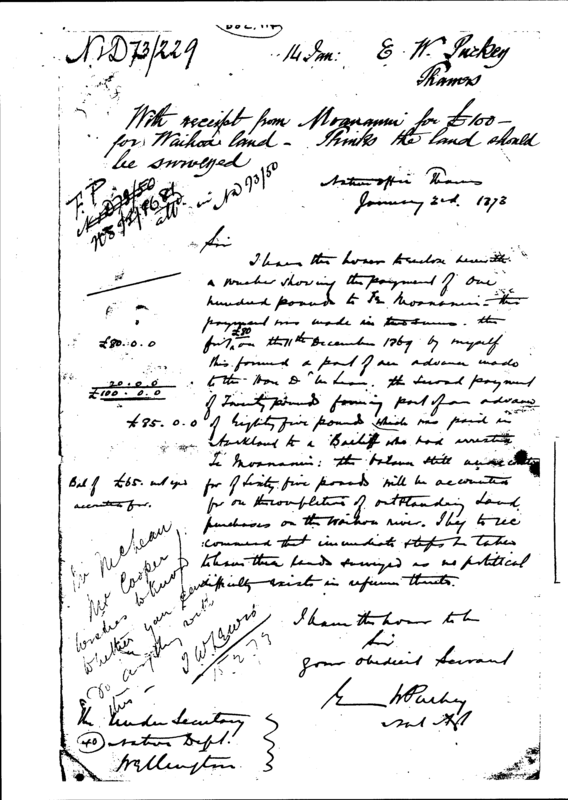 DOC. 114
N&D73/229
14 Jan:
E. W. Puckey
Thames
With receipt from Moananui for £100 -
for Waihou land - Thinks the land should
be surveyed
F. P.
N&D73/50
attd. in ND 73/50
Native Office Thames
January 2nd 1873
Sir
I have the honor to enclose herewith
a voucher showing the payment of One
hundred pounds to Te Moananui - this
payment was made in two sums. the
first £80 on the 11th December 1869 by myself
£80. 0. 0
this formed a part of an advance made
to the Hon Dr McLean. the second payment
20. 0. 0
£100. 0. 0
of Twenty pounds forming part of an advance
£85. 0. 0
of Eighty five pounds which was paid in
Auckland to a Bailiff who had arrested
Te Moananui: the balance still unaccounted
Bal of £65. not yet
accounted for.
for of Sixty five pounds will be accounted
for on the completion of outstanding Land
purchases on the Waihou river. I beg to re
commend that immediate steps be taken
to have these lands surveyed as no political
difficulty exists in reference thereto.
Dr McLean
Mr Cooper
wishes to know
whether you can
do anything with
this -
J. W. Lewis
15.2.73
I have the honor to be
Sir
your obedient Servant
E W Puckey
Nat Agt
The Under Secretary
Native Dept.
Wellington
40